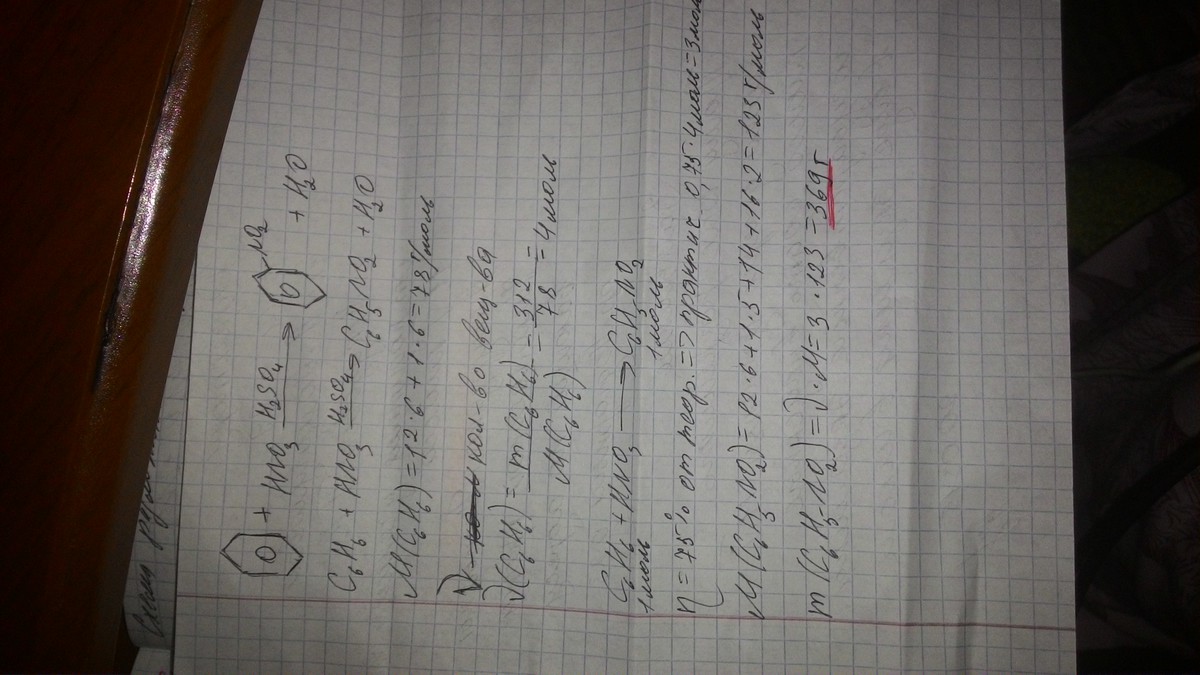 + HNO3 H2SO4 → NO2 + H2O
C6H6 + HNO3 H2SO4 → C6H5NO2 + H2O
M(C6H6) = 12·6 + 1·6 = 78 г/моль
ν кол-во вещ-ва
ν(C6H6) = m(C6H6) / M(C6H6) = 312 / 78 = 4 моль
C6H6 + HNO3 ⟶ C6H5NO2
1моль 1моль
η = 75% от теор. => практич 0,75·4моль=3моль
M(C6H5NO2) = 12·6+1·5+14+16·2=123 г/моль
m(C6H5-NO2) = ν·M = 3·123 = 369г